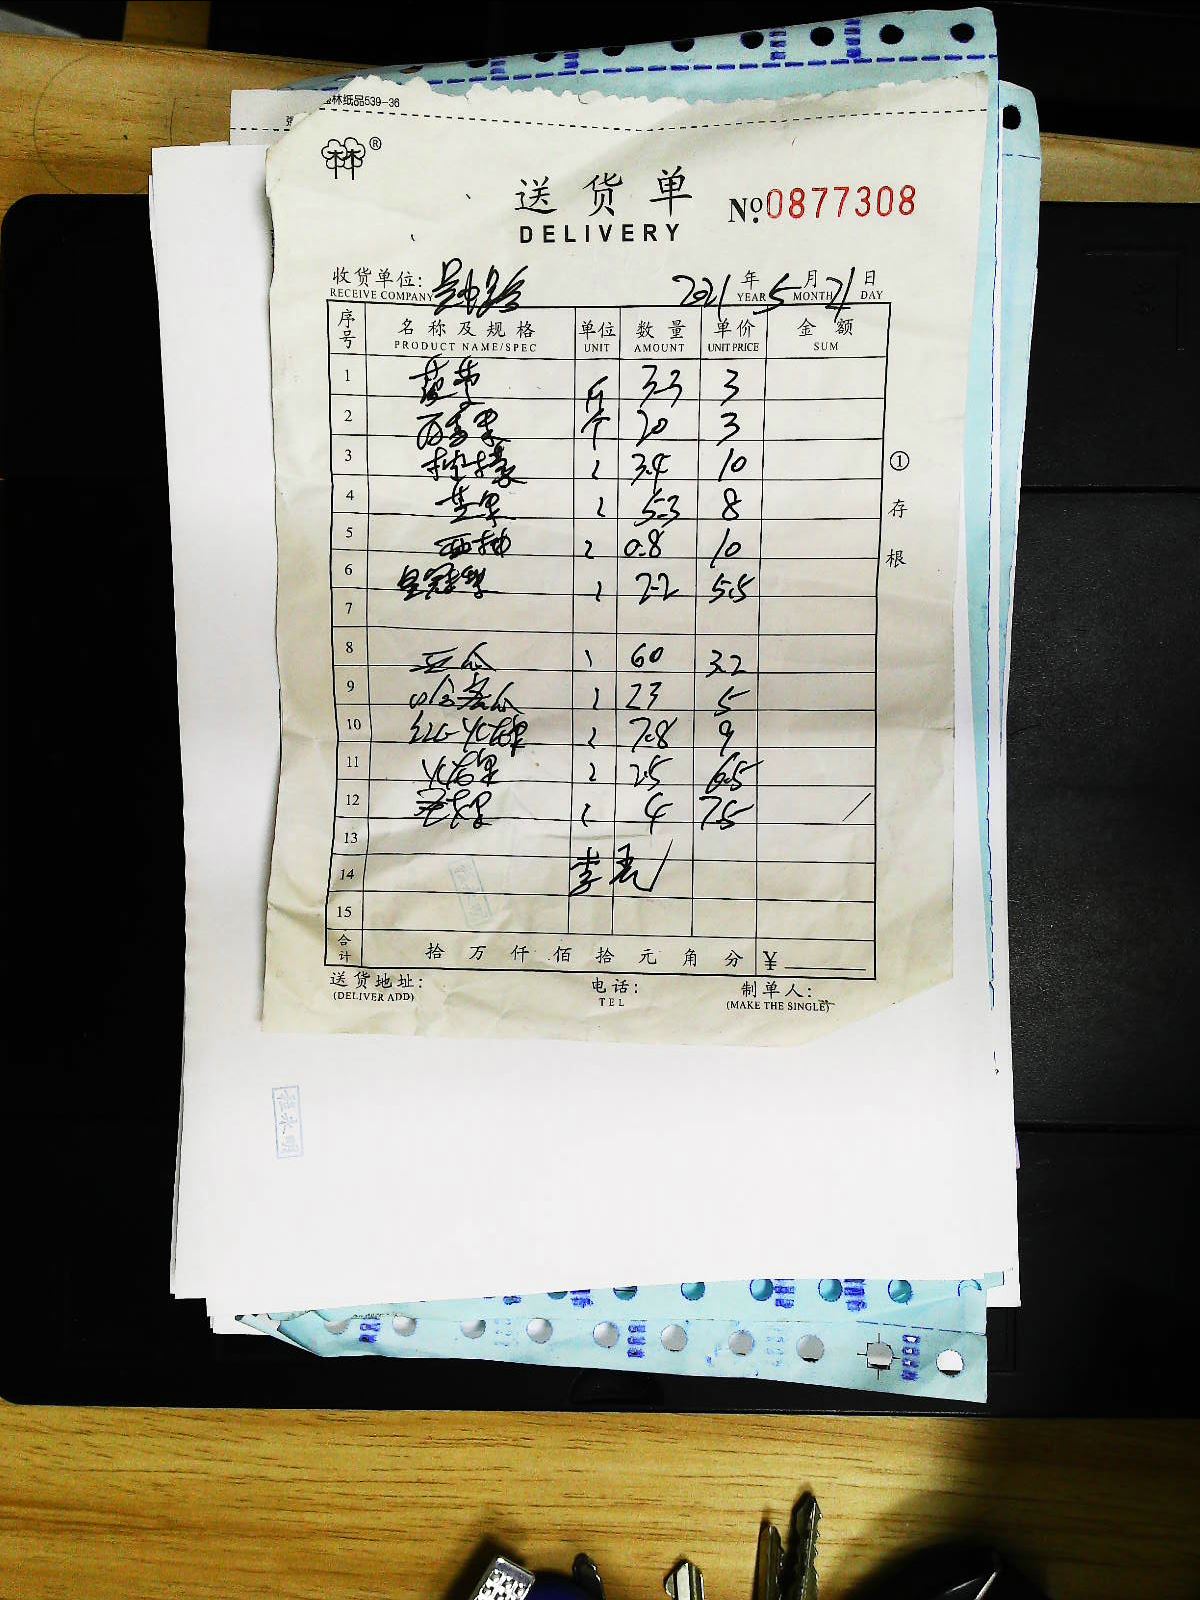 金林纸品539-36
®
送货单
DELIVERY
№0877308
收货单位:
RECEIVE COMPANY
2021年5月21日
YEAR MONTH DAY
序号 名称及规格 单位 数量 单价 金额
PRODUCT NAME/SPEC UNIT AMOUNT UNIT PRICE SUM
1 菠萝 斤 3.3 3
2 百香果 个 20 3
3 3.4 10
4 芒果 5.3 8
5 西柚 0.8 10
6 皇冠梨 2.2 5.5
7
8 西瓜 60 3.2
9 哈密瓜 23 5
10 7.8 9
11 火龙果 2.5 6.5
12 4 7.5
13
14
15
合计 拾万仟佰拾元角分 ¥
①存根
送货地址:
(DELIVER ADD)
电话:
TEL
制单人:
(MAKE THE SINGLE)